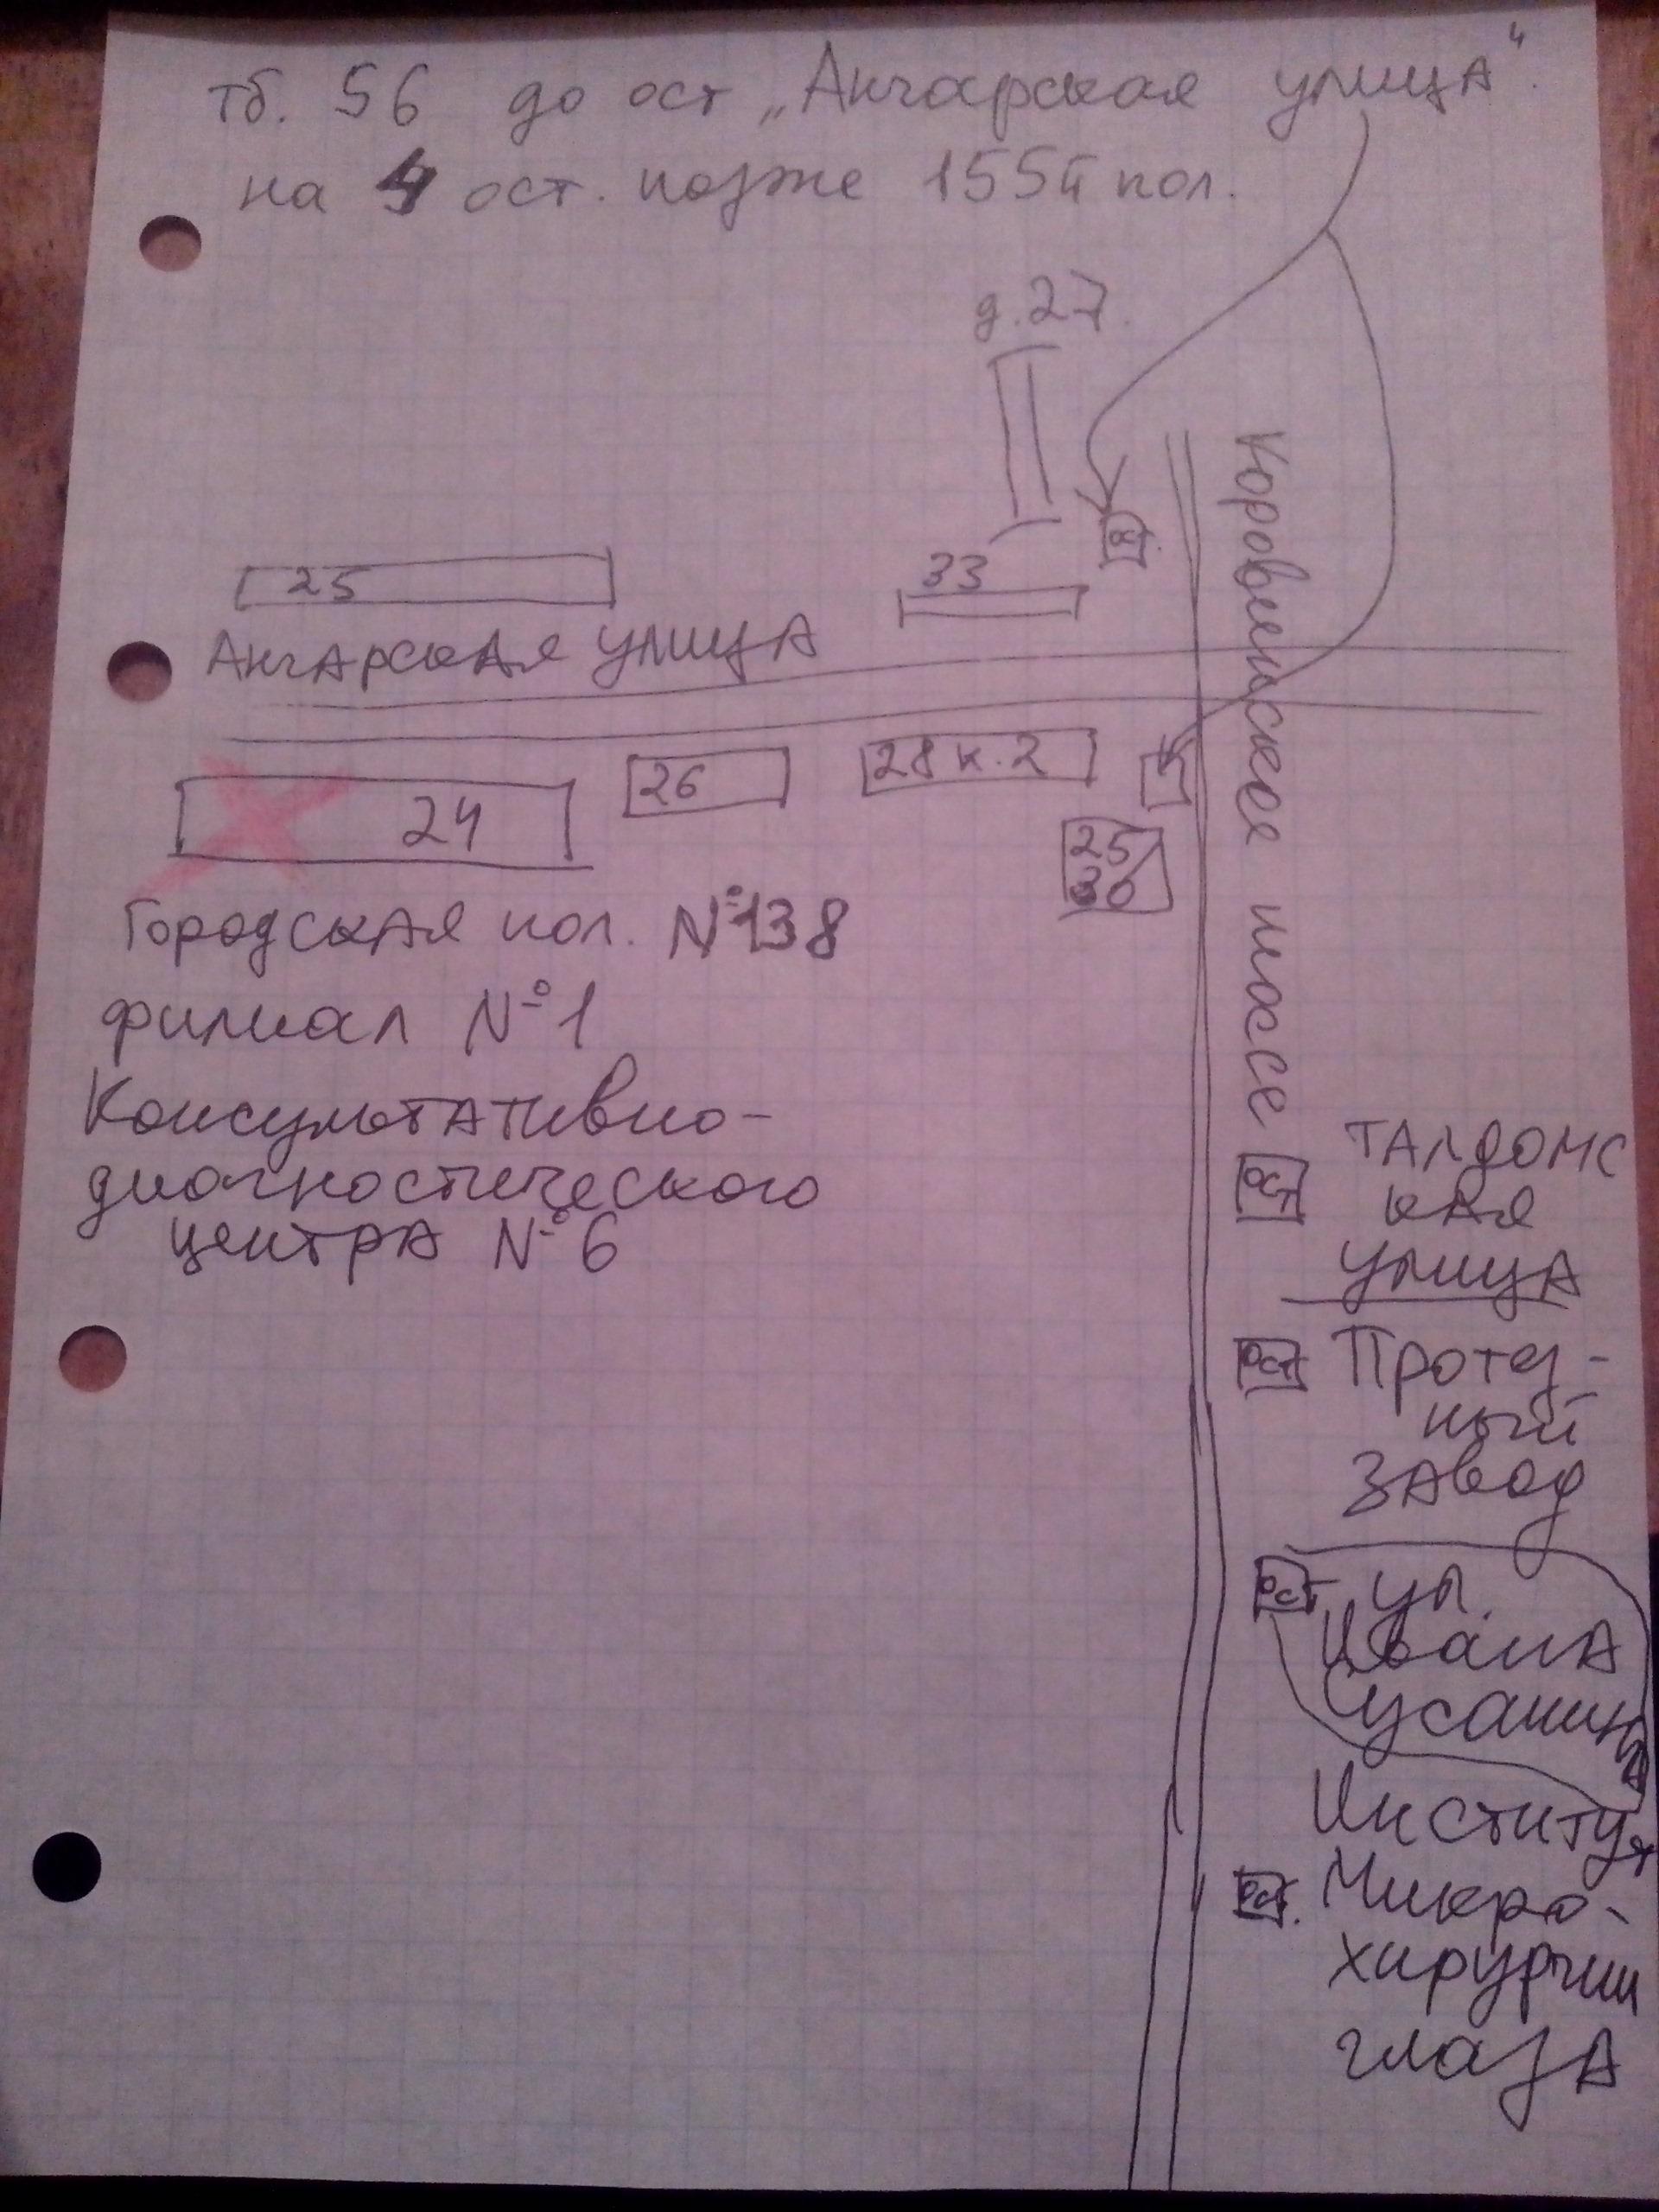 тб. 56 до ост „Ангарская улица“.
на 4 ост. позже 155й пол.
д. 27.
Коровинское шоссе
33
25
Ангарская улица
26
28 к. 2
24
25/30
Городская пол. №138
филиал №1
Консультативно-
диагностического
центра №6
ост
Талдомс
кая
улица
ост
Протез-
ный
завод
ост
ул.
Ивана
Сусанина
Институт
ост.
Микро-
хирургии
глаза